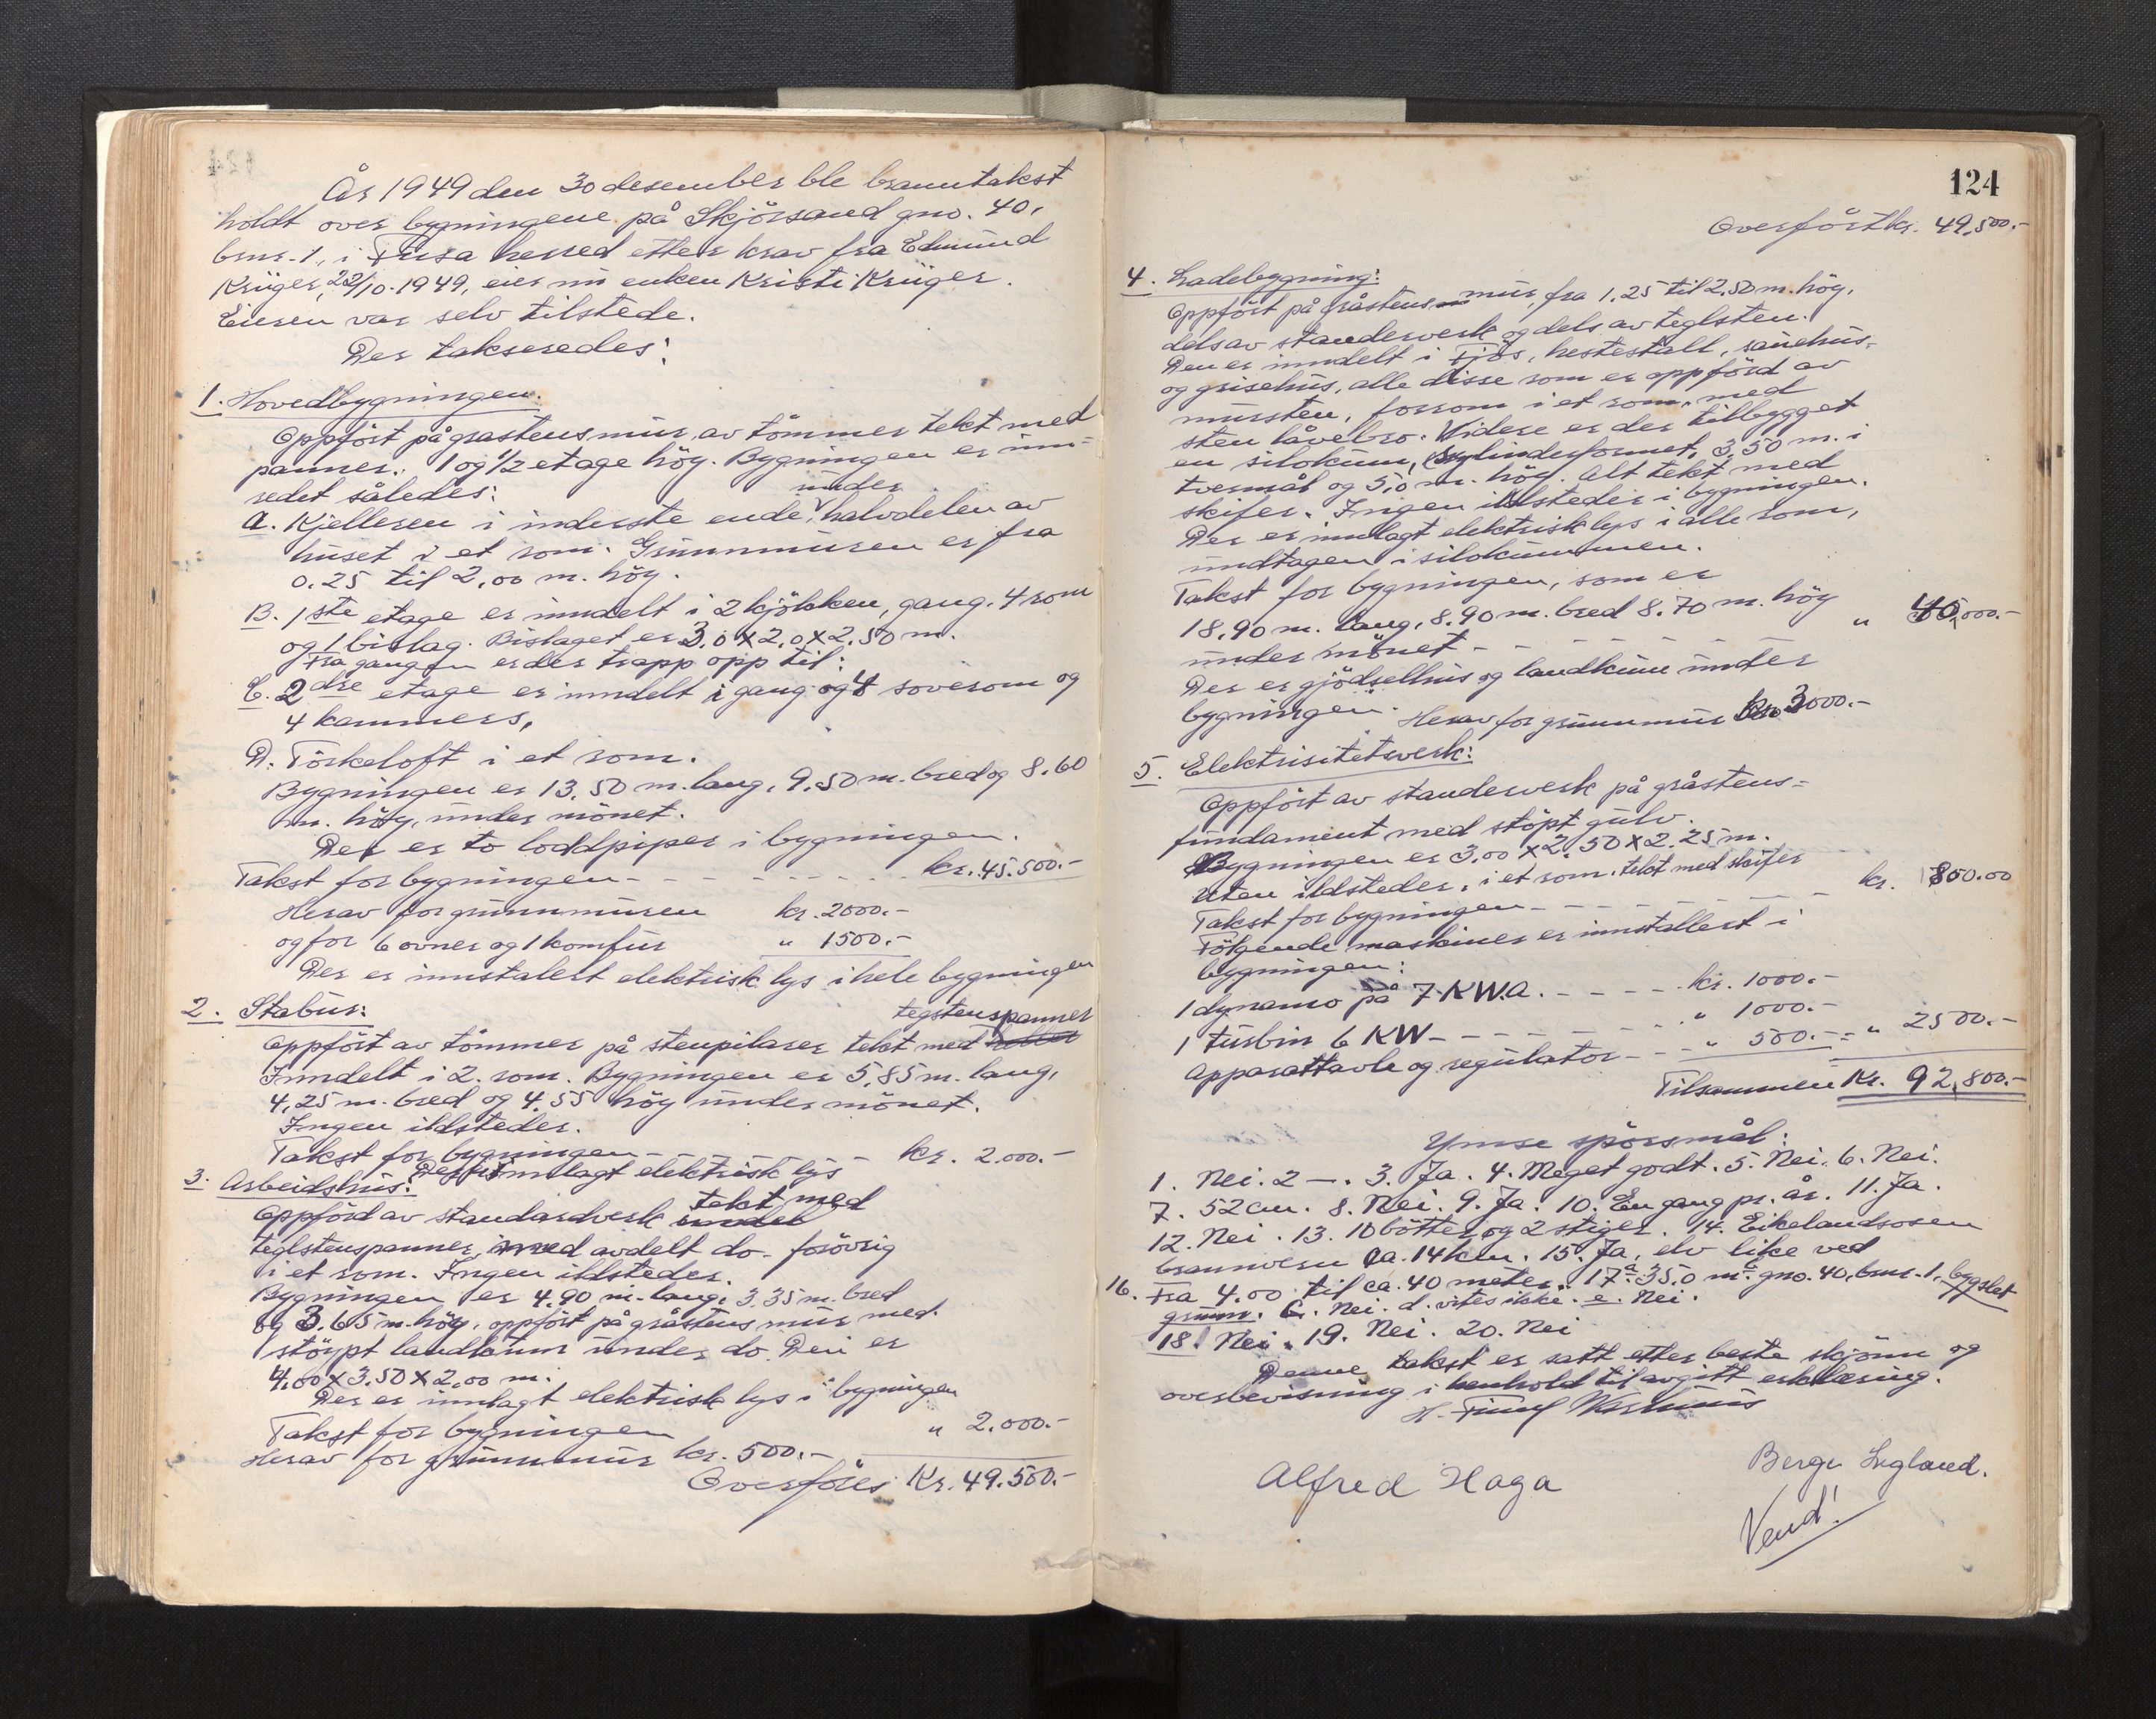 År 1949 den 30 desember ble branntakst
holdt over bygningene på Skjörsand gno. 40,
brnr. 1, i Fusa herred etter krav fra Edmund
Krüger, 22/10-1949, eier nu enken Kristi Krüger.
Eieren var selv tilstede.
Der takseredes:
1. Hovedbygningen:
Oppfört på gråstensmur, av tömmer tekt med
panner. 1 og 1/2 etage höy. Bygningen er inn-
redet således:
under
A. Kjelleren i inderste ende, halvdelen av
huset i et rom. Grunnmuren er fra
0.25 til 2,00 m. höy.
B. 1ste etage er inndelt i 2 kjökken, gang, 4 rom
og 1 bislag. Bislaget er 3.0 X 2,0 X 2.50 m.
Fra gangen er der trapp opp til:
C. 2dre etage er inndelt i gang og 4 soverom og
4 kammers,
D. Törkeloft i et rom.
Bygningen er 13.50 m. lang, 9,50 m. bred og 8.60
m. höy, under mönet.
Der er to loddpiper i bygningen.
Takst for bygningen - - - - - - - kr. 45.500.-
Herav for grunnmuren kr. 2000.-
og for 6 ovner og 1 komfur " 1500.-
Der er innstalert elektrisk lys i hele bygningen
2. Stabur:
tegstenspanner
Oppfört av tömmer på stenpilarer tekt med
Inndelt i 2. rom. Bygningen er 5,85 m. lang,
4,25 m. bred og 4,55 höy under mönet.
Ingen ildsteder.
Takst for bygningen - - - - - - kr. 2.000.-
Der er innlagt elektrisk lys
3. Arbeidshus:
tekt med
Oppförd av standardverk
teglstenspanner, med avdelt do. forövrig
i et rom. Ingen ildsteder.
Bygningen er 4,90 m. lang, 3.35 m. bred
og 3,65 m. höy, oppfört på gråstens mur med
stöypt landkum under do. Den er
4,00 X 3.50 X 2,00 m.
Der er innlagt elektrisk lys i bygningen
Takst for bygningen " 2.000.-
Herav for grunnmur kr. 500.-
Overföres Kr. 49.500.-
124
Overfört kr. 49,500.-
4. Ladebygning:
Oppfört på gråstensmur, fra 1.25 til 2.50 m. höy,
dels av standerverk og dels av teglsten.
Den er inndelt i Fjös, hestestall, sauehus-
og grisehus, alle disse som er oppförd av
mursten, forsom i et rom, med
sten låvebro. Videre er der tilbygget
en silokum, sylinderformet, 3,50 m. i
tvermål og 5,0 m. höy. Alt tekt med
skifer. Ingen ildsteder i bygningen.
Der er innlagt elektrisk lys i alle rom,
undtagen i silokummen.
Takst for bygningen, som er
18,90 m. lang, 8.90 m. bred 8.70 m. höy
under mönet - - - - - - - " 40,000.-
Der er gjödselhus og landkum under
bygningen. Herav for grunnmur kr. 3000.-
5. Elektrisitetsverk:
Oppfört av standerverk på gråstens-
fundament med stöpt gulv.
Bygningen er 3,00 X 2.50 X 2.25 m.
Uten ildsteder, i et rom. tekt med skifer
Takst for bygningen - - - - - - - kr. 800.00
Fölgende maskiner er innstallert i
bygningen:
1 dynamo på 7 KW.A. - - - - kr. 1000.-
1 turbin 6 KW - - - - - - - " 1000.-
Apparattavle og regulator - - - " 500.- - " 2500.-
Tilsammen Kr. 92,800.-
Ymse spörsmål:
1. Nei. 2 —. 3. Ja. 4. Meget godt. 5. Nei. 6. Nei.
7. 52 cm. 8. Nei. 9. Ja. 10. En gang pr. år. 11. Ja.
12. Nei. 13. 10 bötter og 2 stiger. 14. Eikelandsosen
brannvern ca. 14 km. 15. Ja, elv like ved
16. Fra 4.00 til ca. 40 meter. 17. a 35,0 m. gno. 40, brnr. 1, bygslet
grunn. C. Nei. d. vites ikke. e. Nei.
18. Nei. 19. Nei. 20. Nei
Denne takst er satt etter beste skjönn og
overbevisning i henhold til avgitt erklæring.
Alfred Haga
Berge Legland.
Vend!